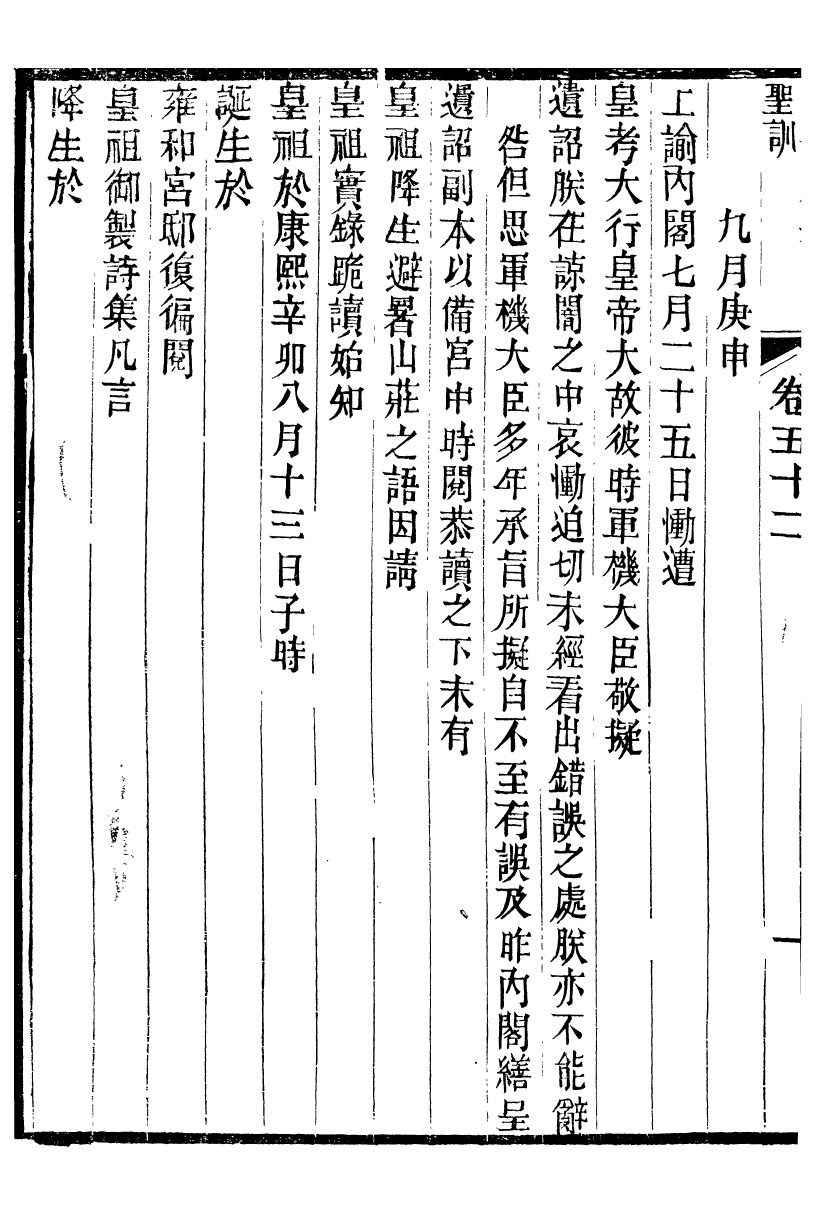 聖訓 卷五十二 一
九月庚申
上諭內閣七月二十五日慟遭
皇考大行皇帝大故彼時軍機大臣敬擬
遺詔朕在諒闇之中哀慟迫切未經看出錯誤之處朕亦不能辭
咎但思軍機大臣多年承旨所擬自不至有誤及昨內閣繕呈
遺詔副本以備宮中時閱恭讀之下末有
皇祖降生避暑山莊之語因請
皇祖實錄跪讀始知
皇祖於康熙辛卯八月十三日子時
誕生於
雍和宮邸復徧閱
皇祖御製詩集凡言
降生於